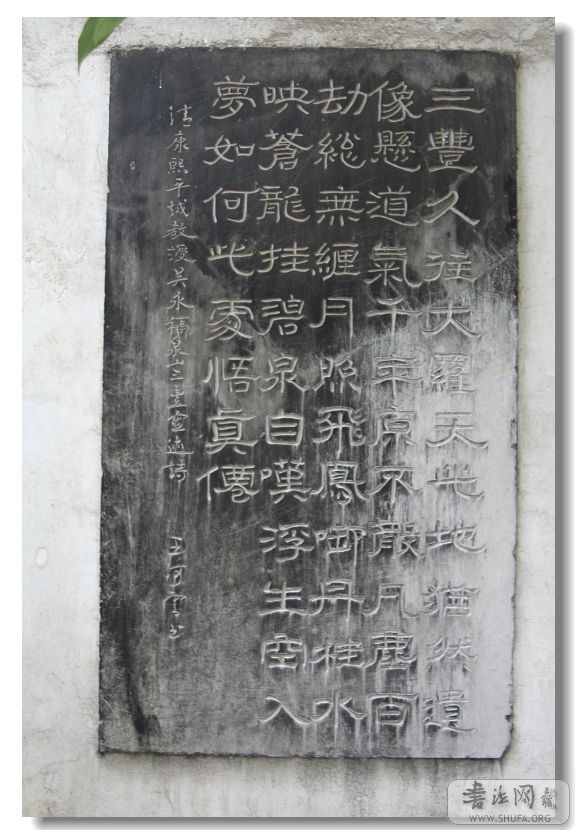 三豐久往大羅天此地猶然遺
像懸道氣千年原不散凡塵百
劫總無纏月照飛鳳啣丹桂水
映蒼龍挂碧泉自嘆浮生空入
夢如何此處悟真僊
清康熙平越教授吴永福泉山三豐靈迹詩
书法网
WWW.SHUFA.ORG